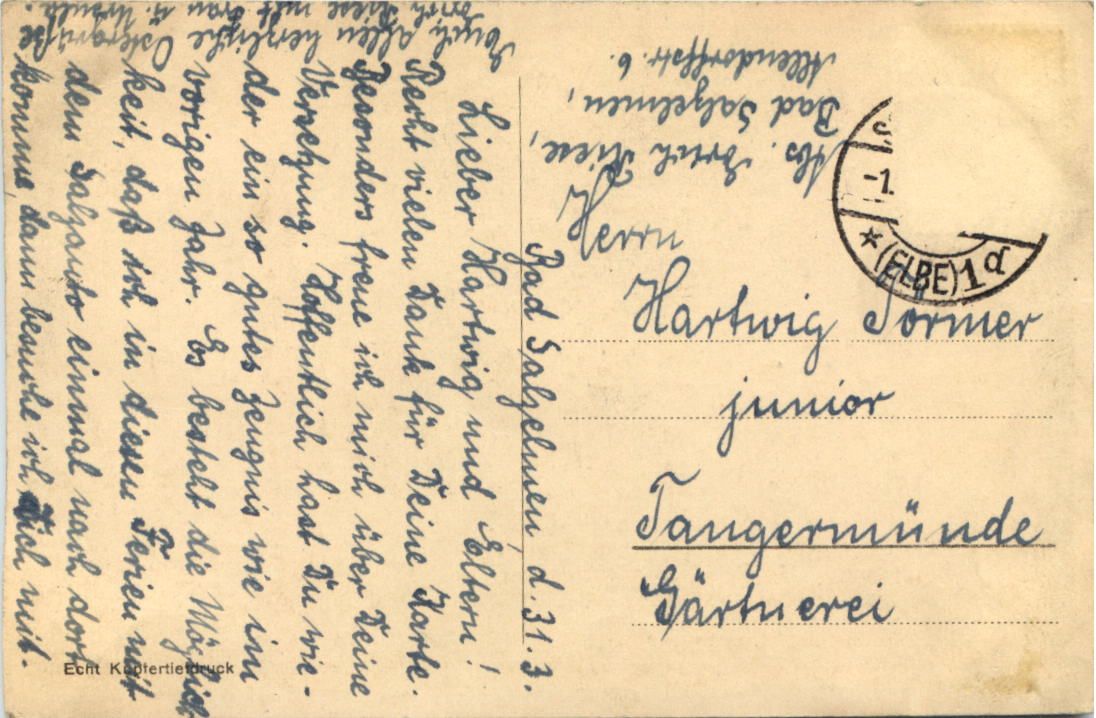 Bad Salzelmen d. 31.3.
Lieber Hartwig und Eltern!
Recht vielen Dank für Deine Karte.
Besonders freue ich mich über Deine
Versetzung. Hoffentlich hast Du wie-
der ein so gutes Zeugnis wie im
vorigen Jahr. Es besteht die Möglich-
keit, daß ich in diesen Ferien mit
dem Salzauto einmal nach dort
komme, dann besuche ich Dich mit.
Euch allen herzliche Ostergrüße
Erich Riese mit Frau u.
Abs. Erich Riese,
Bad Salzelmen,
Allendorffstr. 6.
Herrn
Hartwig Tormer
junior
Tangermünde
Gärtnerei
-1.
(ELBE) 1 d
Echt Kupfertiefdruck